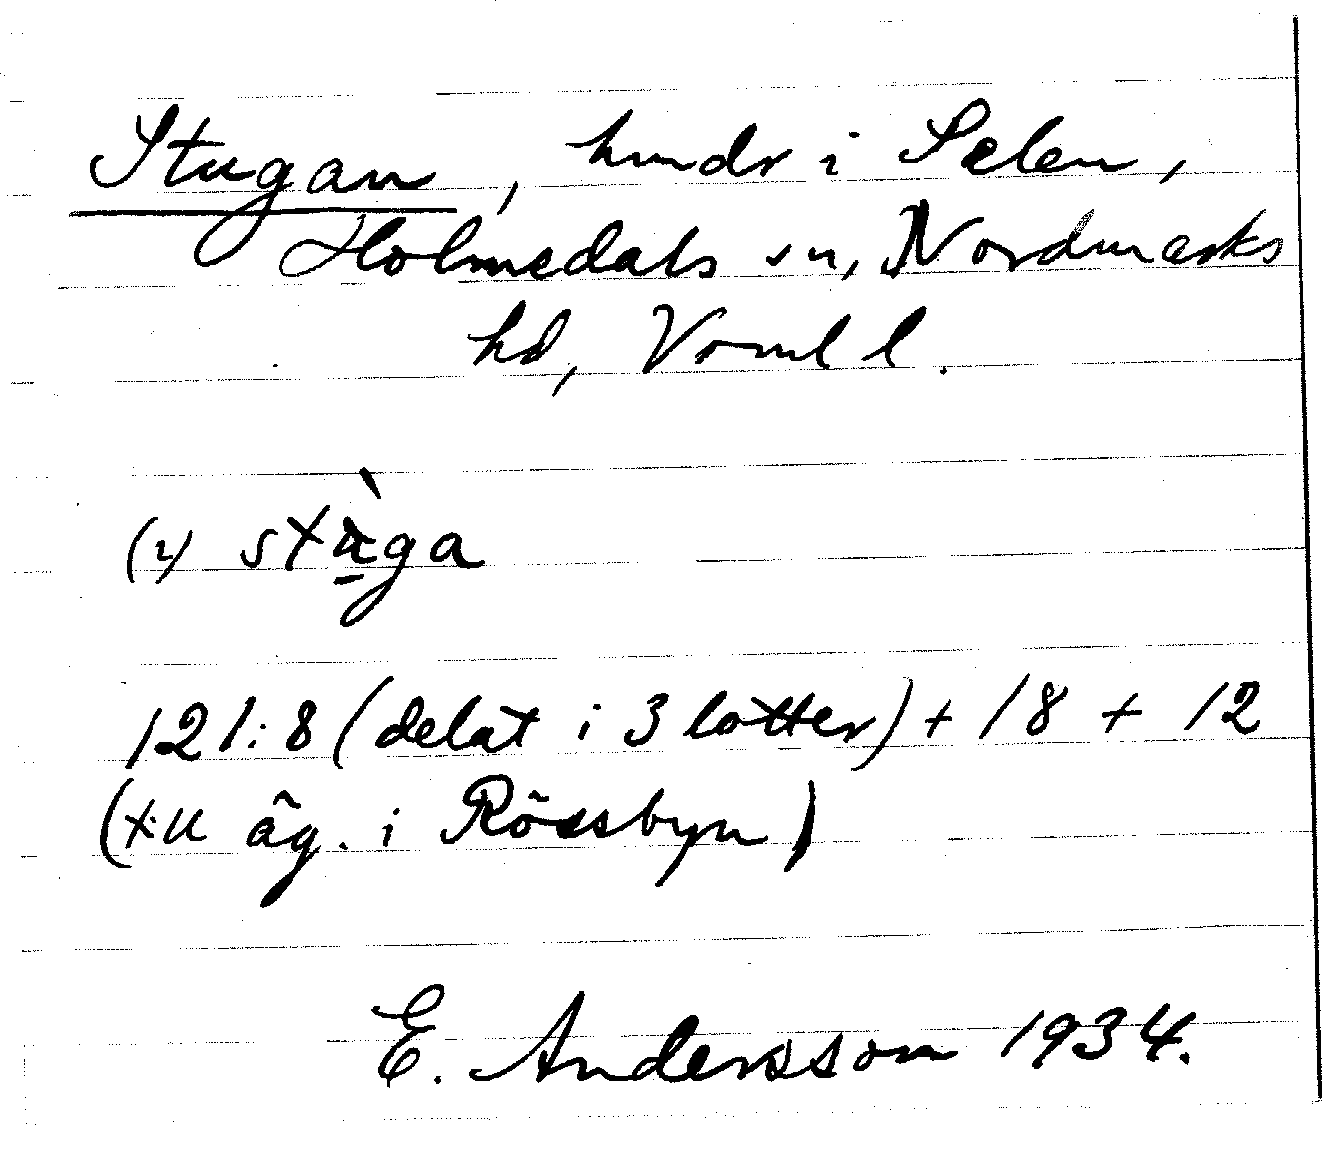 Stugan, hmdr i Selen,
Holmedals sn, Nordmarks
hd, Vrml l.
(2) stùga
121:8 (delat i 3 lotter) + 18 + 12
äg. i Rössbyn)
E. Andersson 1934.